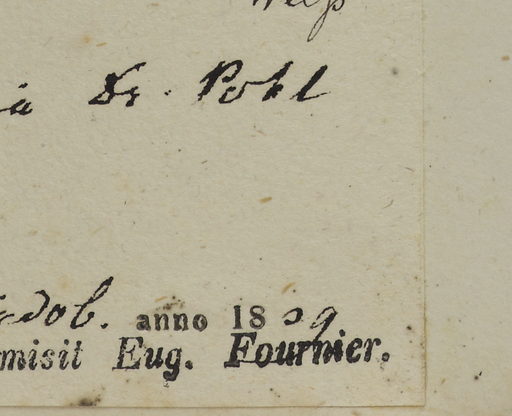 Dr. Pohl
dob. anno 1829
misit Eug. Fournier.